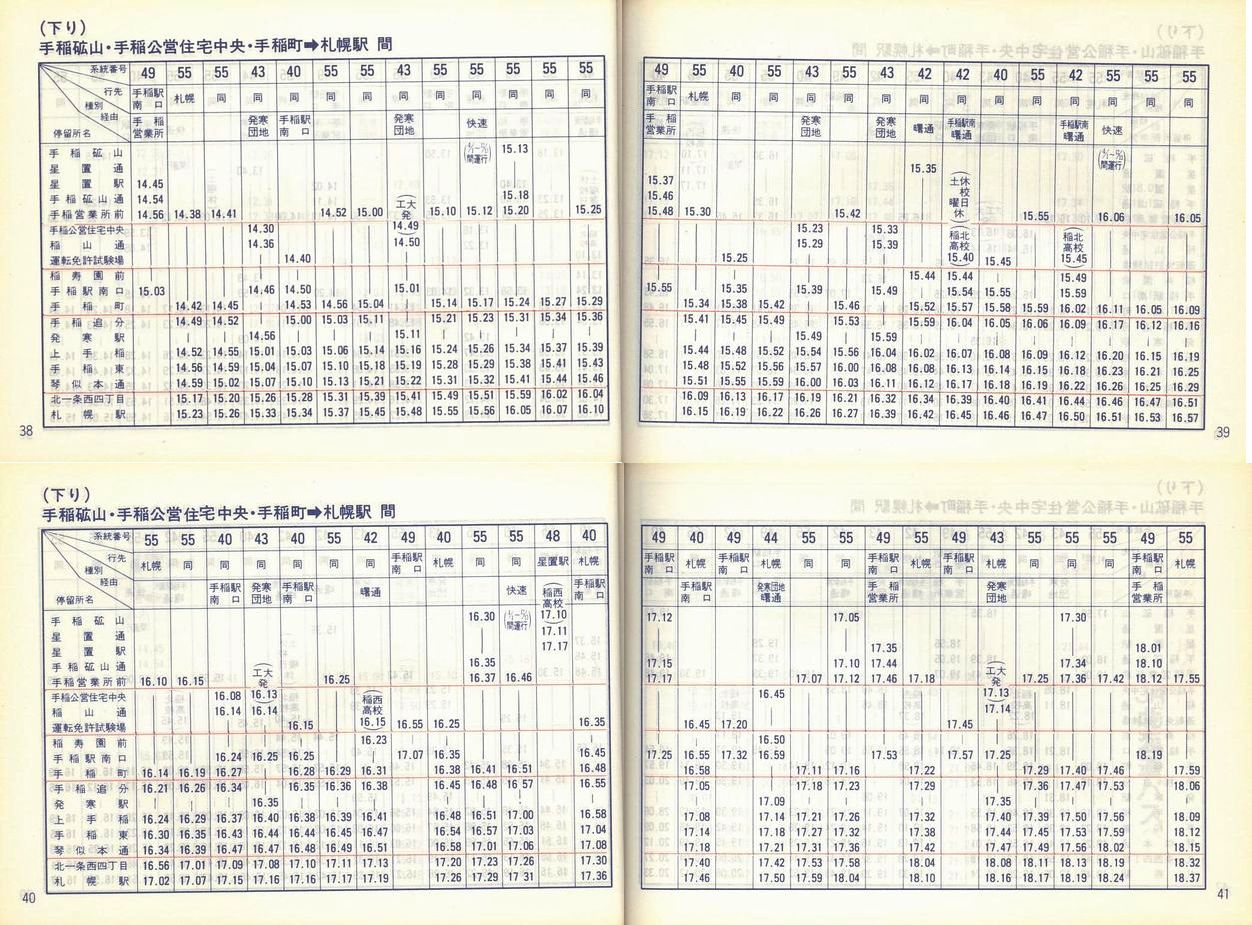 (下り)
手稲砿山・手稲公営住宅中央・手稲町➡札幌駅 間
系統番号 49 55 55 43 40 55 55 43 55 55 55 55 55
行先 種別 経由 停留所名
手稲駅南口 札幌 同 同 同 同 同 同 同 同 同 同 同
手稲営業所 発寒団地 手稲駅南口 発寒団地 快速
手稲砿山 間運行 15.13
星置通
星置駅 14.45
手稲砿山通 14.54 工大発 15.18
手稲営業所前 14.56 14.38 14.41 14.52 15.00 15.10 15.12 15.20 15.25
手稲公営住宅中央 14.30 14.49
稲山通 14.36 14.50
運転免許試験場 14.40
稲寿園前
手稲駅南口 15.03 14.46 14.50 15.01
手稲町 14.42 14.45 14.53 14.56 15.04 15.14 15.17 15.24 15.27 15.29
手稲追分 14.49 14.52 15.00 15.03 15.11 15.21 15.23 15.31 15.34 15.36
発寒駅 14.56 15.11
上手稲 14.52 14.55 15.01 15.03 15.06 15.14 15.16 15.24 15.26 15.34 15.37 15.39
手稲東 14.56 14.59 15.04 15.07 15.10 15.18 15.19 15.28 15.29 15.38 15.41 15.43
琴似本通 14.59 15.02 15.07 15.10 15.13 15.21 15.22 15.31 15.32 15.41 15.44 15.46
北一条西四丁目 15.17 15.20 15.26 15.28 15.31 15.39 15.41 15.49 15.51 15.59 16.02 16.04
札幌駅 15.23 15.26 15.33 15.34 15.37 15.45 15.48 15.55 15.56 16.05 16.07 16.10
38
49 55 40 55 43 55 43 42 42 40 55 42 55 55 55
手稲駅南口 札幌 同 同 同 同 同 同 同 同 同 同 同 同 同
手稲営業所 発寒団地 発寒団地 曙通 手稲駅南曙通 手稲駅南曙通 快速
15.35 間運行
15.37 土休校曜日休
15.46
15.48 15.30 15.42 15.55 16.06 16.05
15.23 15.33 稲北高校 稲北高校
15.29 15.39
15.25 15.40 15.45 15.45
15.44 15.44 15.49
15.55 15.35 15.39 15.49 15.54 15.55 15.59
15.34 15.38 15.42 15.46 15.52 15.57 15.58 15.59 16.02 16.11 16.05 16.09
15.41 15.45 15.49 15.53 15.59 16.04 16.05 16.06 16.09 16.17 16.12 16.16
15.49 15.59
15.44 15.48 15.52 15.54 15.56 16.04 16.02 16.07 16.08 16.09 16.12 16.20 16.15 16.19
15.48 15.52 15.56 15.57 16.00 16.08 16.08 16.13 16.14 16.15 16.18 16.23 16.21 16.25
15.51 15.55 15.59 16.00 16.03 16.11 16.12 16.17 16.18 16.19 16.22 16.26 16.25 16.29
16.09 16.13 16.17 16.19 16.21 16.32 16.34 16.39 16.40 16.41 16.44 16.46 16.47 16.51
16.15 16.19 16.22 16.26 16.27 16.39 16.42 16.45 16.46 16.47 16.50 16.51 16.53 16.57
39
(下り)
手稲砿山・手稲公営住宅中央・手稲町➡札幌駅 間
系統番号 55 55 40 43 40 55 42 49 40 55 55 48 40
行先 種別 経由 停留所名
札幌 同 同 同 同 同 同 手稲駅南口 札幌 同 同 星置駅 札幌
手稲駅南口 発寒団地 手稲駅南口 曙通 快速 稲西高校 手稲駅南口
手稲砿山 16.30 間運行 17.10
星置通 17.11
星置駅 17.17
手稲砿山通 工大発 16.35
手稲営業所前 16.10 16.15 16.25 16.37 16.46
手稲公営住宅中央 16.08 16.13 稲西高校
稲山通 16.14 16.14
運転免許試験場 16.15 16.15 16.55 16.25 16.35
稲寿園前 16.23
手稲駅南口 16.24 16.25 16.25 17.07 16.35 16.45
手稲町 16.14 16.19 16.27 16.28 16.29 16.31 16.38 16.41 16.51 16.48
手稲追分 16.21 16.26 16.34 16.35 16.36 16.38 16.45 16.48 16.57 16.55
発寒駅 16.35
上手稲 16.24 16.29 16.37 16.40 16.38 16.39 16.41 16.48 16.51 17.00 16.58
手稲東 16.30 16.35 16.43 16.44 16.44 16.45 16.47 16.54 16.57 17.03 17.04
琴似本通 16.34 16.39 16.47 16.47 16.48 16.49 16.51 16.58 17.01 17.06 17.08
北一条西四丁目 16.56 17.01 17.09 17.08 17.10 17.11 17.13 17.20 17.23 17.26 17.30
札幌駅 17.02 17.07 17.15 17.16 17.16 17.17 17.19 17.26 17.29 17.31 17.36
40
49 40 49 44 55 55 49 55 49 43 55 55 55 49 55
手稲駅南口 札幌 手稲駅南口 札幌 同 同 手稲駅南口 札幌 手稲駅南口 札幌 同 同 同 手稲駅南口 札幌
手稲駅南口 発寒団地曙通 手稲営業所 発寒団地 手稲営業所
17.12 17.05 17.30
17.35 18.01
17.15 17.10 17.44 工大発 17.34 18.10
17.17 17.07 17.12 17.46 17.18 17.25 17.36 17.42 18.12 17.55
16.45 17.13
17.14
16.45 17.20 17.45
16.50
17.25 16.55 17.32 16.59 17.53 17.57 17.25 18.19
16.58 17.11 17.16 17.22 17.29 17.40 17.46 17.59
17.05 17.18 17.23 17.29 17.36 17.47 17.53 18.06
17.09 17.35
17.08 17.14 17.21 17.26 17.32 17.40 17.39 17.50 17.56 18.09
17.14 17.18 17.27 17.32 17.38 17.44 17.45 17.53 17.59 18.12
17.18 17.21 17.31 17.36 17.42 17.47 17.49 17.56 18.02 18.15
17.40 17.42 17.53 17.58 18.04 18.08 18.11 18.13 18.19 18.32
17.46 17.50 17.59 18.04 18.10 18.16 18.17 18.19 18.24 18.37
41